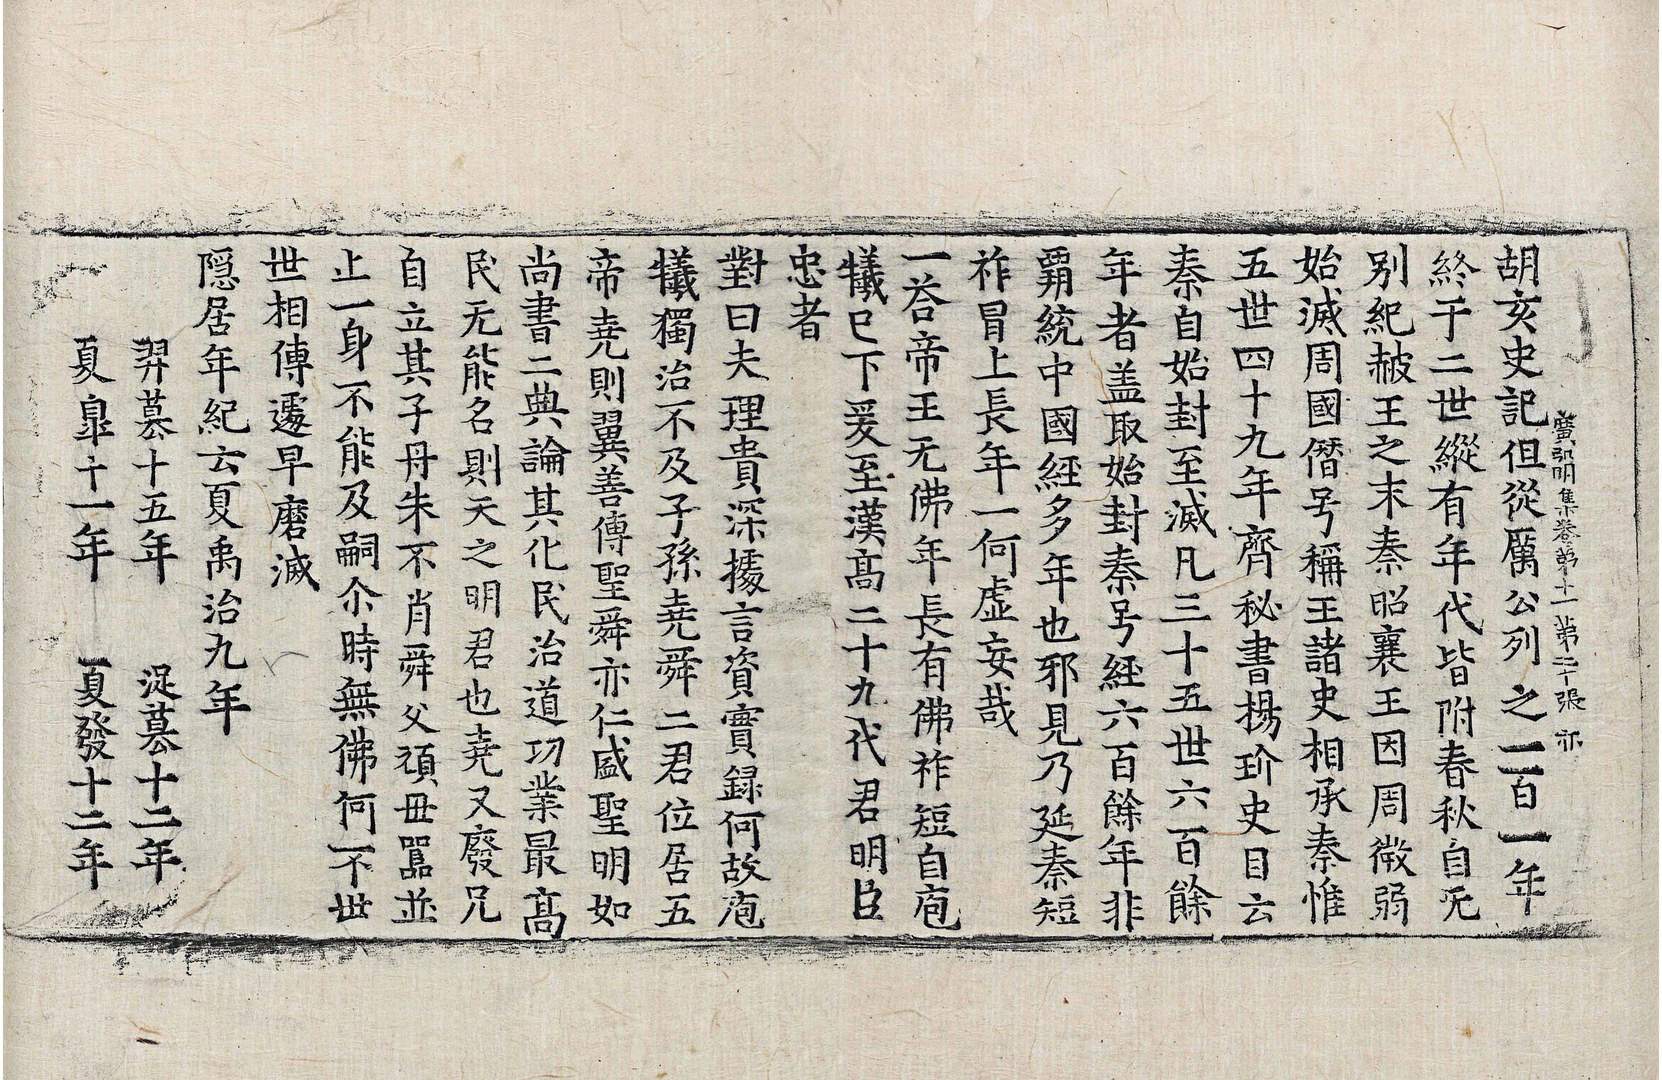 胡亥史記但從厲公列之二百一年
廣弘明集卷第十一 第二十張 亦
終于二世縱有年代皆附春秋自无
别紀赧王之末秦昭襄王因周微弱
始滅周國僭号稱王諸史相承秦惟
五世四十九年齊秘書揚玠史目云
秦自始封至滅凡三十五世六百餘
年者盖取始封秦号經六百餘年非
霸統中國經多年也邪見乃延秦短
祚冒上長年一何虛妄哉
一荅帝王无佛年長有佛祚短自庖
犧已下爰至漢高二十九代君明臣
忠者
對曰夫理貴深據言資實録何故庖
犧獨治不及子孫尭舜二君位居五
帝尭則翼善傳聖舜亦仁盛聖明如
尚書二典論其化民治道功業最高
民无能名則天之明君也尭又廢兄
自立其子丹朱不肖舜父頑毋嚚並
止一身不能及嗣尒時無佛何不世
世相傳遽早磨滅
隠居年紀云夏禹治九年
羿簒十五年 浞簒十二年
夏皐十一年 夏發十二年